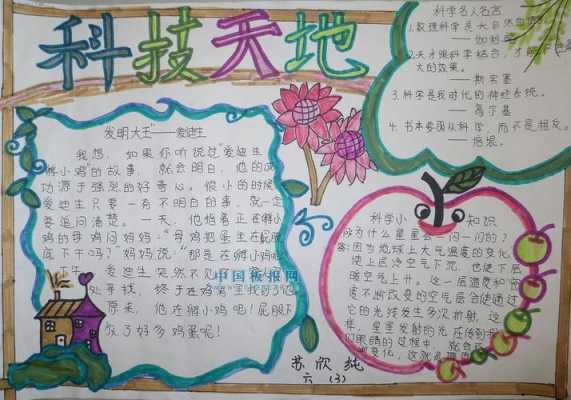 科技天地
发明大王"——爱迪生
我想,如果你听说过"爱迪生
孵小鸡"的故事,就会明白,他的成
功源于强烈的好奇心。很小的时候
爱迪生只要一有不明白的事,就一定
要追问清楚。一天,他指着正在孵小
鸡的母鸡问妈妈:"母鸡把蛋坐在屁股
底下干吗?"妈妈说:"那是在孵小鸡呢
爱迪生突然不见了
处寻找,终于在鸡窝里找到了他
原来,他在孵小鸡吧!屁股下
放了好多鸡蛋呢!
中国板报网
科学名人名言
1.数理科学是大自然的语言
——伽利略
2.天才跟科学结合,才
大的效果。
——斯宾塞
3.科学是我时代的神经系统。
——高尔基
4.书本要服从科学,而不是相反。
——培根。
科学小知识
为什么星星会一闪一闪的?
答:因为地球上大气温度的变化,
使上层冷空气下沉,也使下层
暖空气上升。这一层温度和密
度不断改变的空气层会使通过
它的光线发生多次折射,这
样,星星发射的光在传到我
们眼睛的过程中,就会
变化,这就
苏欣纯
六(3)